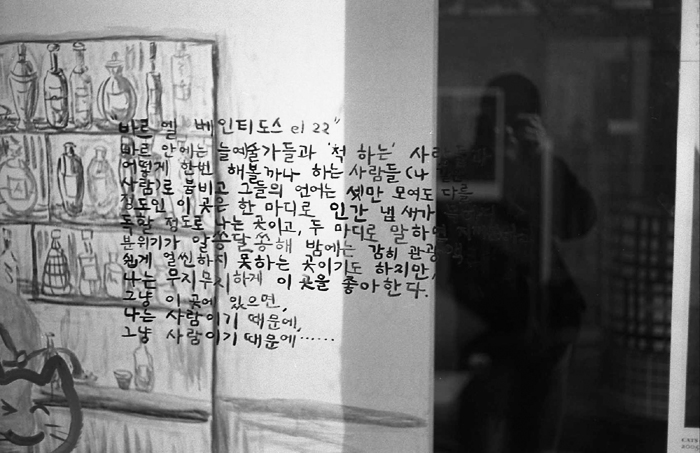 "바르 엘 베인티도스 el 22"
바르 안에는 늘 예술가들과 '척 하는' 사람들과
어떻게 한번 해볼까나 하는 사람들 (나
사람)로 붐비고 그들의 언어는 셋만 모여도 다를
정도인 이 곳은 한 마디로 인간 냄새가
독할 정도로 나는 곳이고, 두 마디로 말하면
분위기가 알쏭달쏭해 밤에는 감히 관광객이
쉽게 얼씬하지 못하는 곳이기도 하지만,
나는 무지무지하게 이 곳을 좋아한다.
그냥 이 곳에 있으면,
나는 사람이기 때문에,
그냥 사람이기 때문에……